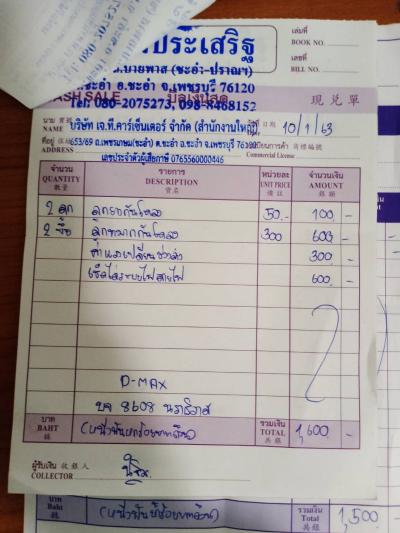 รประเสริฐ
ถ.บายพาส (ชะอำ-ปราณฯ)
อ.ชะอำ จ.เพชรบุรี 76120
โทร 080-2075273, 098-8468152
เล่มที่
BOOK NO.
เลขที่
BILL NO.
CASH SALE บิลเงินสด 現兑單
นาม NAME บริษัท เจ.ที.คาร์เซ็นเตอร์ จำกัด (สำนักงานใหญ่) 日期 10/1/63
ที่อยู่ ADDRESS 653/69 ถ.เพชรเกษม(ชะอำ) ต.ชะอำ อ.ชะอำ จ.เพชรบุรี 76120 ทะเบียนการค้า
เลขประจำตัวผู้เสียภาษี 0765560000446 Commercial License
จำนวน รายการ หน่วยละ จำนวนเงิน
QUANTITY DESCRIPTION UNIT PRICE AMOUNT
數量 貨名 價銀
2 ลูก ลูกยางกันโคลง 50.- 100 -
2 ชิ้น ลูกหมากกันโคลง 300 600 -
ค่าแรงเปลี่ยนช่วงล่าง 300 -
เช็คไล่ระบบไฟสายไฟ 600 -
D-MAX
บจ 8608 นราธิวาส
บาท BAHT (หนึ่งพันหกร้อยบาทถ้วน) รวมเงิน TOTAL 共銀 1,600 -
ผู้รับเงิน 收銀人
COLLECTOR
บาท Baht (หนึ่งพันห้าร้อยบาทถ้วน) รวมเงิน Total 共銀 1,500 -